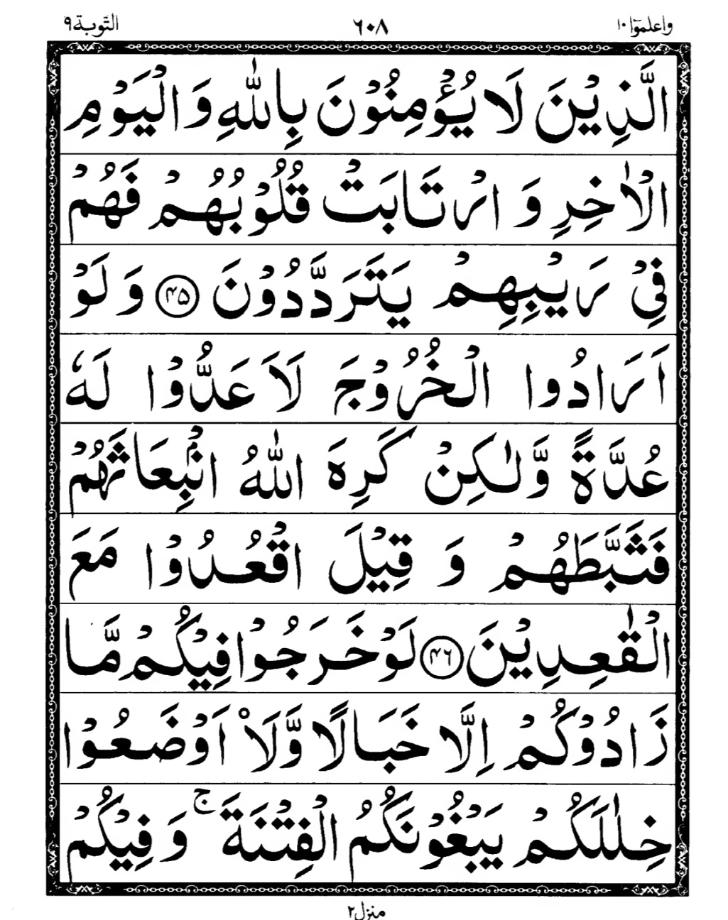 واعلموٓا ١٠ ٦٠٨ التوبة ٩
الَّذِيْنَ لَا يُؤْمِنُوْنَ بِاللّٰهِ وَ الْيَوْمِ
الْاٰخِرِ وَ ارْتَابَتْ قُلُوْبُهُمْ فَهُمْ
فِيْ رَيْبِهِمْ يَتَرَدَّدُوْنَ ۝۴۵ وَ لَوْ
اَرَادُوا الْخُرُوْجَ لَاَعَدُّوْا لَهٗ
عُدَّةً وَّلٰكِنْ كَرِهَ اللّٰهُ انْۢبِعَاثَهُمْ
فَثَبَّطَهُمْ وَ قِيْلَ اقْعُدُوْا مَعَ
الْقٰعِدِيْنَ ۝۴۶ لَوْ خَرَجُوْا فِيْكُمْ مَّا
زَادُوْكُمْ اِلَّا خَبَالًا وَّلَا۠ اَوْضَعُوْا
خِلٰلَكُمْ يَبْغُوْنَكُمُ الْفِتْنَةَ ۚ وَ فِيْكُمْ
منزل ۲